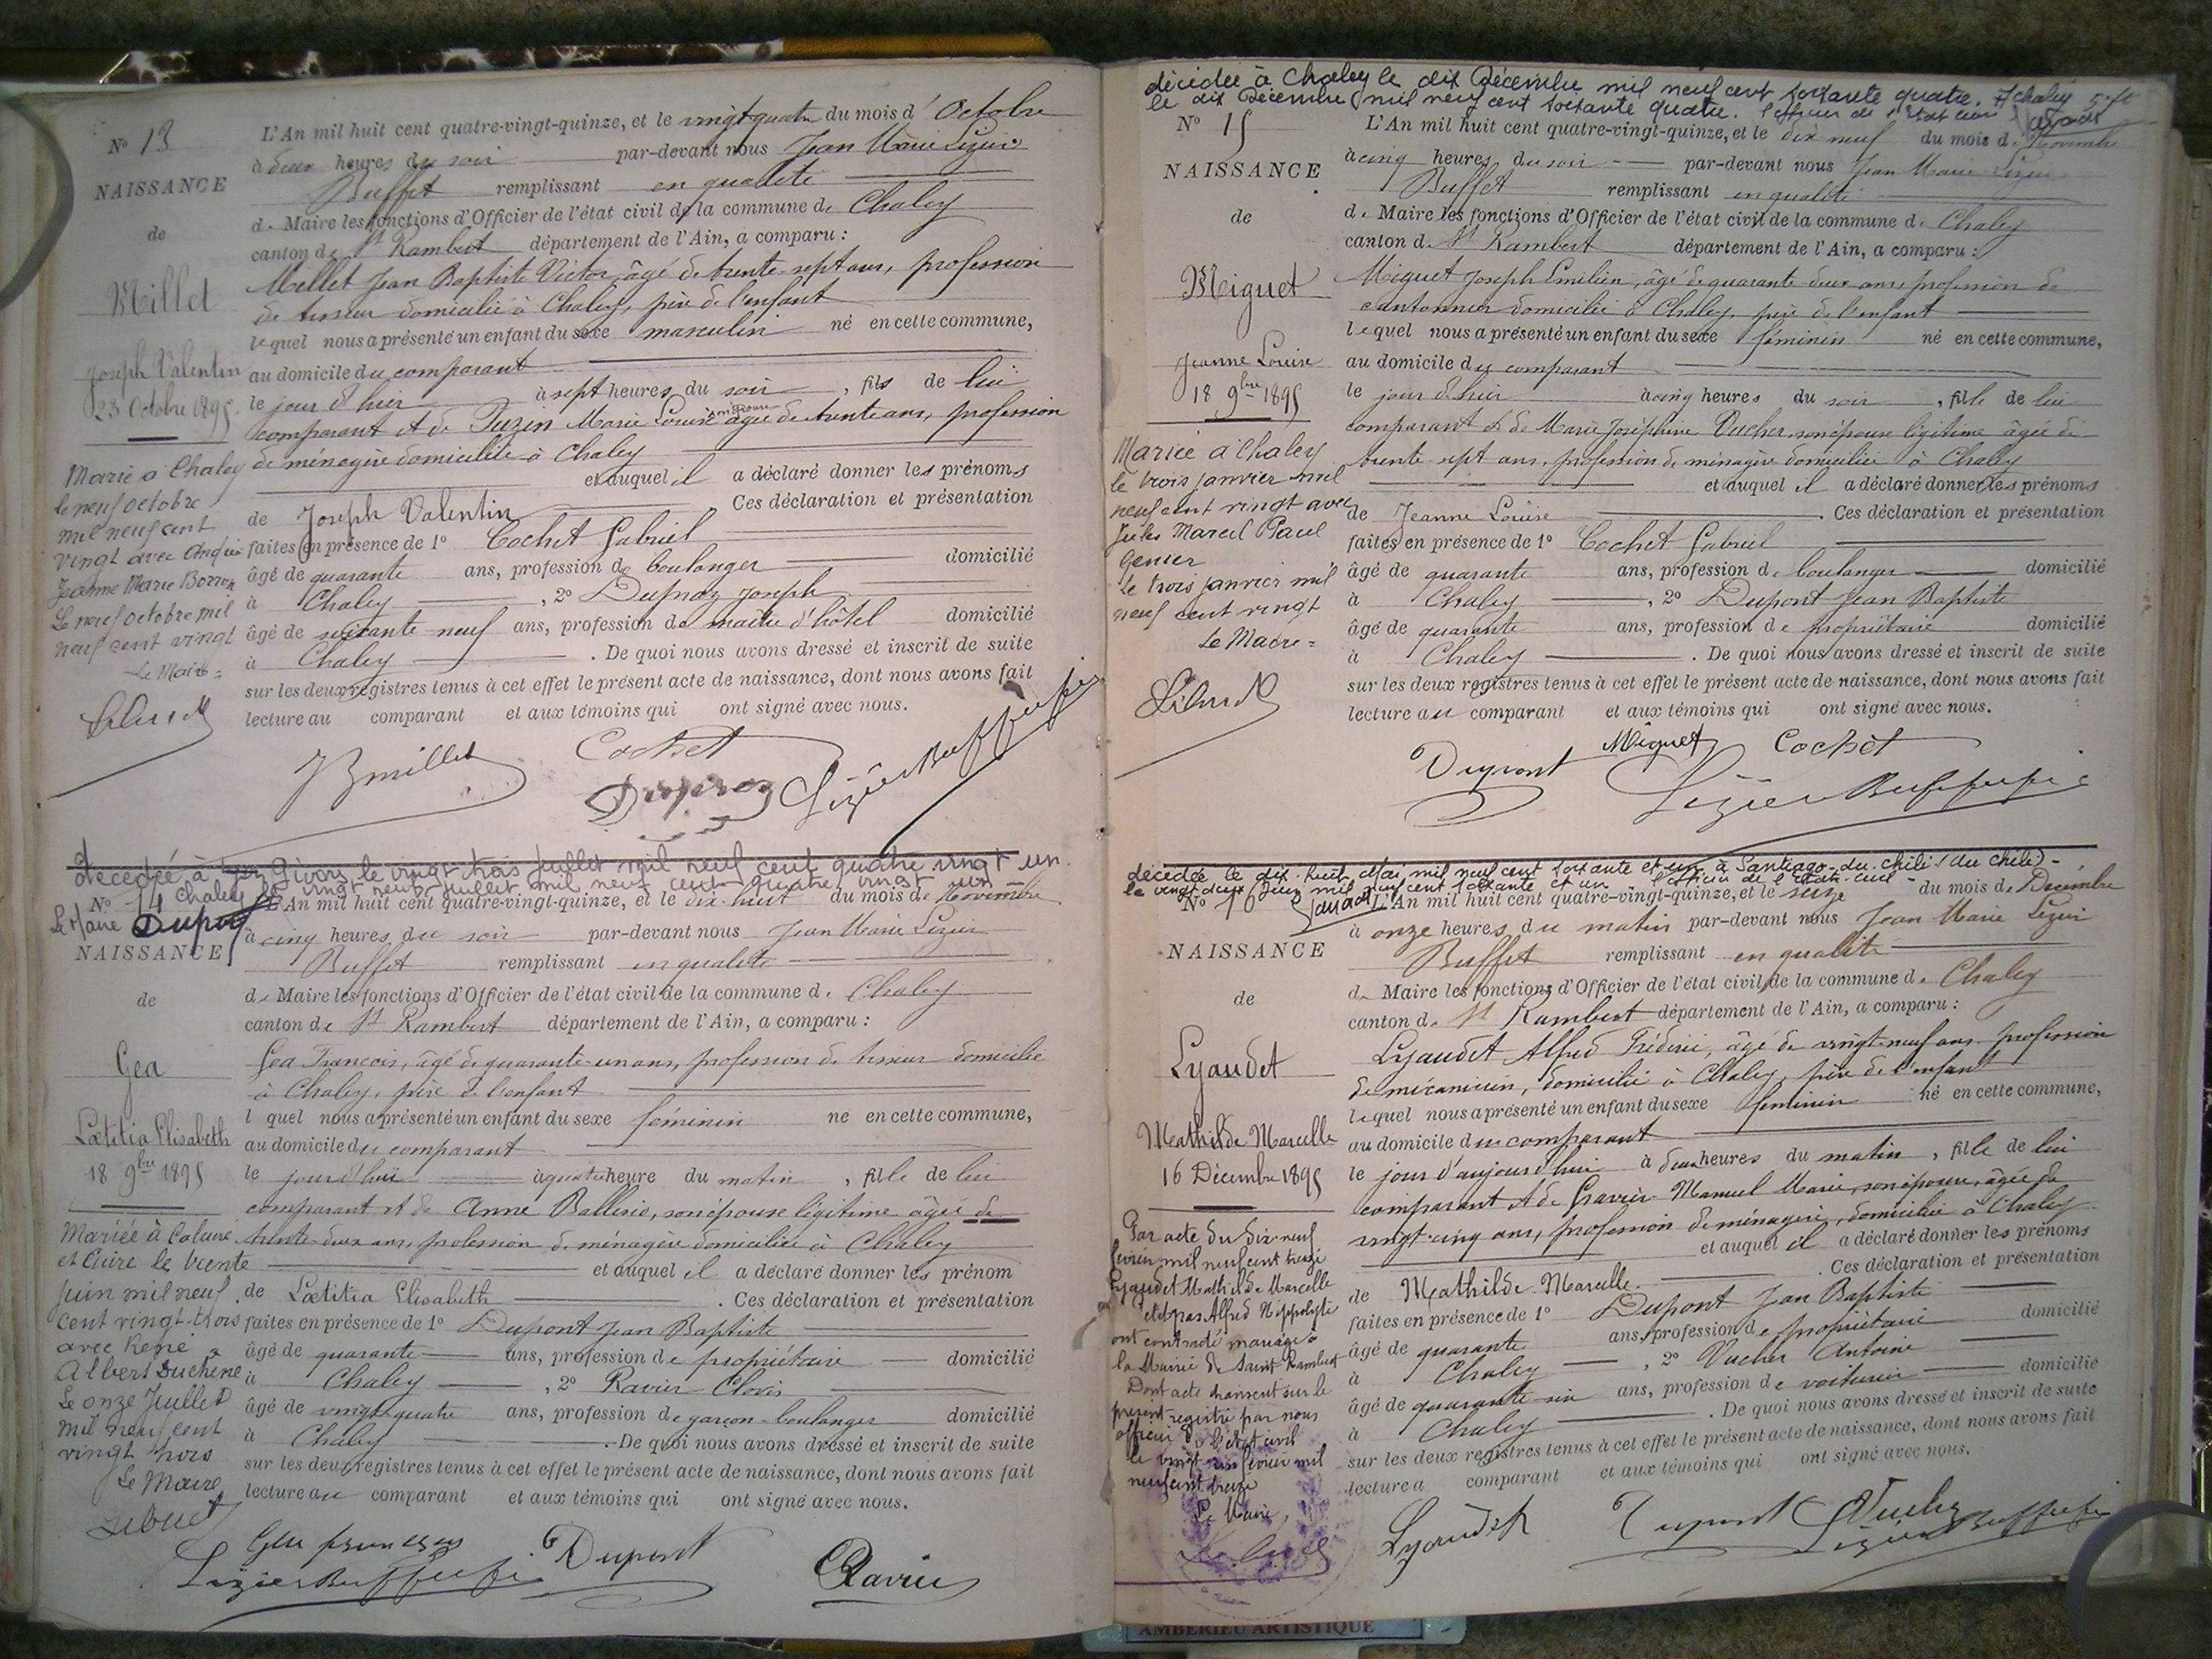 No 13
NAISSANCE
de
Millet
Joseph Valentin
23 Octobre 1895
Marié à Chaley
le neuf octobre
mil neuf cent
vingt avec
Jeanne Marie
Le neuf octobre mil
neuf cent vingt
Le Maire =
L'An mil huit cent quatre-vingt-quinze, et le vingt quatre du mois d'Octobre
à deux heures du soir par-devant nous Jean Marie Lizier
Buffet remplissant en qualité
de Maire les fonctions d'Officier de l'état civil de la commune de Chaley
canton de St Rambert département de l'Ain, a comparu :
Millet Jean Baptiste Victor, âgé de trente-sept ans, profession
de tisseur domicilié à Chaley, père de l'enfant
lequel nous a présenté un enfant du sexe masculin né en cette commune,
au domicile du comparant
le jour d'hier à sept heures du soir, fils de lui
comparant et de Juzin Marie Louise son épouse âgée de trente ans, profession
de ménagère domiciliée à Chaley
et auquel il a déclaré donner les prénoms
de Joseph Valentin Ces déclaration et présentation
faites en présence de 1° Cochet Gabriel
âgé de quarante ans, profession de boulanger domicilié
à Chaley, 2° Dupraz Joseph
âgé de soixante-neuf ans, profession de maître d'hôtel domicilié
à Chaley . De quoi nous avons dressé et inscrit de suite
sur les deux registres tenus à cet effet le présent acte de naissance, dont nous avons fait
lecture au comparant et aux témoins qui ont signé avec nous.
JB millet Cochet
Dupraz Lizier Buffet
décédée à Givors le vingt trois Juillet mil neuf cent quatre vingt un.
Chaley le vingt neuf Juillet mil neuf cent quatre vingt un
Le Maire Dupraz
No 14
NAISSANCE
de
Gea
Lœtitia Elisabeth
18 9bre 1895
Mariée à Caluire
et Cuire le trente
Juin mil neuf
cent vingt-trois
avec René
Albert Duchene
Le onze Juillet
mil neuf cent
vingt trois
Le Maire
L'An mil huit cent quatre-vingt-quinze, et le dix-huit du mois de Novembre
à cinq heures du soir par-devant nous Jean Marie Lizier
Buffet remplissant en qualité
de Maire les fonctions d'Officier de l'état civil de la commune de Chaley
canton de St Rambert département de l'Ain, a comparu :
Gea François, âgé de quarante-un ans, profession de tisseur domicilié
à Chaley, père de l'enfant
l quel nous a présenté un enfant du sexe féminin né en cette commune,
au domicile du comparant
le jour d'hui à quatre heure du matin, fille de lui
comparant et de Anne Ballerio, son épouse légitime âgée de
trente-deux ans, profession de ménagère domiciliée à Chaley
et auquel il a déclaré donner les prénom
de Lœtitia Elisabeth . Ces déclaration et présentation
faites en présence de 1° Dupont Jean Baptiste
âgé de quarante ans, profession de propriétaire domicilié
à Chaley, 2° Ravier Clovis
âgé de vingt-quatre ans, profession de garçon-boulanger domicilié
à Chaley . De quoi nous avons dressé et inscrit de suite
sur les deux registres tenus à cet effet le présent acte de naissance, dont nous avons fait
lecture au comparant et aux témoins qui ont signé avec nous.
Gea françois Dupont
Lizier Buffet Ravier
décédée à Chaley le dix Décembre mil neuf cent soixante quatre. Chaley
le dix Décembre mil neuf cent soixante quatre. l'officier de l'état civil
No 15
NAISSANCE
de
Miguet
Jeanne Louise
18 9bre 1895
Mariée à Chaley
le trois janvier mil
neuf cent vingt avec
Jules Marcel Paul
Genier
Le trois janvier mil
neuf cent vingt
Le Maire =
L'An mil huit cent quatre-vingt-quinze, et le dix neuf du mois de Novembre
à cinq heures du soir par-devant nous Jean Marie Lizier
Buffet remplissant en qualité
de Maire les fonctions d'Officier de l'état civil de la commune de Chaley
canton de St Rambert département de l'Ain, a comparu :
Miguet Joseph Emilien, âgé de quarante deux ans, profession de
cantonnier domicilié à Chaley, père de l'enfant
lequel nous a présenté un enfant du sexe féminin né en cette commune,
au domicile du comparant
le jour d'hier à cinq heures du soir, fille de lui
comparant et de Marie Joséphine Vucher, son épouse légitime âgée de
trente sept ans, profession de ménagère domiciliée à Chaley
et auquel il a déclaré donner les prénoms
de Jeanne Louise . Ces déclaration et présentation
faites en présence de 1° Cochet Gabriel
âgé de quarante ans, profession de boulanger domicilié
à Chaley, 2° Dupont Jean Baptiste
âgé de quarante ans, profession de propriétaire domicilié
à Chaley . De quoi nous avons dressé et inscrit de suite
sur les deux registres tenus à cet effet le présent acte de naissance, dont nous avons fait
lecture au comparant et aux témoins qui ont signé avec nous.
Dupont Miguet Cochet
Lizier Buffet
décédée le dix-huit Mai mil neuf cent soixante et un à Santiago-du-chili (du Chili) -
le vingt deux Juin mil neuf cent soixante et un l'officier de l'état-civil -
No 16
NAISSANCE
de
Lyaudet
Mathilde Marcelle
16 Décembre 1895
Par acte du dix-neuf
février mil neuf cent treize
Lyaudet Mathilde Marcelle
et Alfred Hippolyte
ont contracté mariage à
la Mairie de Saint Rambert
Dont acte transcrit sur le
présent registre par nous
officier de l'état civil
le vingt février mil
neuf cent treize
Le Maire,
L'An mil huit cent quatre-vingt-quinze, et le seize du mois de Décembre
à onze heures du matin par-devant nous Jean Marie Lizier
Buffet remplissant en qualité
de Maire les fonctions d'Officier de l'état civil de la commune de Chaley
canton de St Rambert département de l'Ain, a comparu :
Lyaudet Alfred Fréderic, âgé de vingt-neuf ans profession
de mécanicien, domicilié à Chaley, père de l'enfant
lequel nous a présenté un enfant du sexe féminin né en cette commune,
au domicile du comparant
le jour d'aujourd'hui à deux heures du matin, fille de lui
comparant et de Gravier Manuel Marie, son épouse, âgée de
vingt-cinq ans, profession de ménagère, domiciliée à Chaley
et auquel il a déclaré donner les prénoms
de Mathilde Marcelle . Ces déclaration et présentation
faites en présence de 1° Dupont Jean Baptiste
âgé de quarante ans, profession de propriétaire domicilié
à Chaley, 2° Vucher Antoine
âgé de quarante-six ans, profession de voiturier domicilié
à Chaley . De quoi nous avons dressé et inscrit de suite
sur les deux registres tenus à cet effet le présent acte de naissance, dont nous avons fait
lecture a comparant et aux témoins qui ont signé avec nous.
Lyaudet Dupont Vucher
Lizier Buffet
AMBERIEU ARTISTIQUE